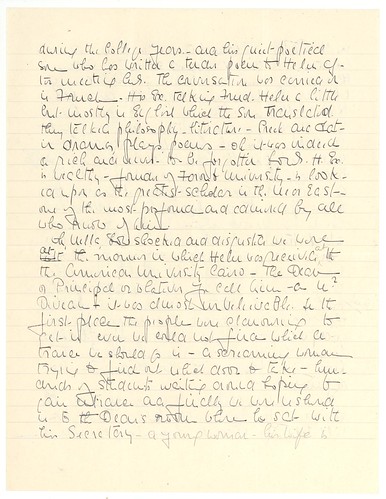 during the College years - and his quiet poetical
son who has written a poem to Helen af-
ter meeting her. The conversation was carried on
in French - His Ex. talking French. Helen a little
but mostly in English which the son translated.
They talked philosophy - literature - Greek and Lat-
in dramas, plays, poems - oh it was indeed
a rich and never to be forgotten hour. H. Ex.
is wealthy - founder of University - is look-
ed upon as the greatest scholar in the Near East -
one of the most profound and admired by all
who know of him.
Oh Nella, how shocked and disgusted we were
at the manner in which Helen was received at
the American University Cairo - The Dean
or Principal or whatever you call him - a Mr
- it was almost unbelievable. In the
first place the people were clamouring to
get in even we could not find which en-
trance we should go in - a screaming woman
trying to find out what door to take - hun-
dreds of students waiting around hoping to
gain entrance and finally we were ushered
in to the Deans room where he sat with
his Secretary - a young woman - his wife